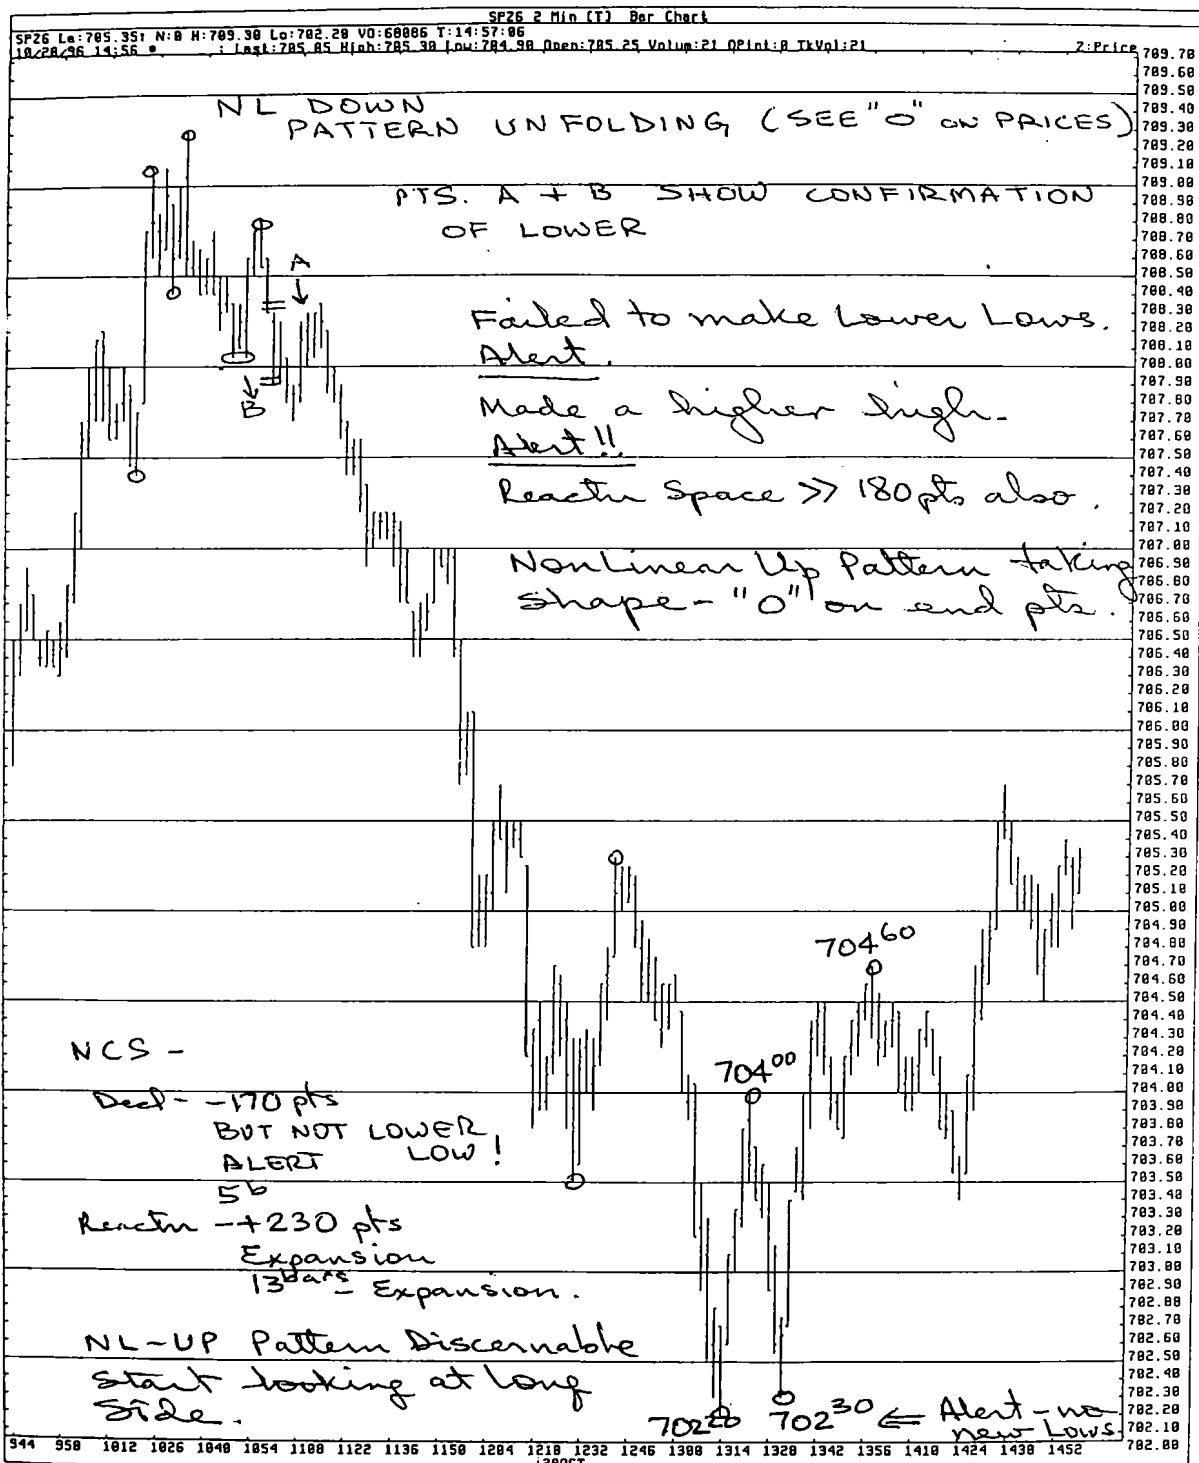 SPZ6 2 Min (T) Bar Chart
SPZ6 La:705.35↑ N:0 H:709.30 Lo:702.20 VO:60086 T:14:57:06
10/28/96 14:56 : Last:705.05 High:705.30 Low:704.90 Open:705.25 Volum:21 OPint:0 TkVol:21 2:Price
NL DOWN
PATTERN UNFOLDING (SEE "O" ON PRICES)
PTS. A + B SHOW CONFIRMATION
OF LOWER
A
B
Failed to make Lower Lows.
Alert.
Made a higher high.
Alert!!
Reactn Space >> 180 pts also.
NonLinear Up Pattern taking
Shape - "O" on end pts.
704 60
704 00
NCS -
Decl - -170 pts
BUT NOT LOWER
ALERT LOW!
5 b
Reactn - +230 pts
Expansion
13 bars - Expansion.
NL-UP Pattern Discernable
Start looking at long
Side.
702 20 702 30 ⇐ Alert - no
new Lows.
709.70
709.60
709.50
709.40
709.30
709.20
709.10
709.00
708.90
708.80
708.70
708.60
708.50
708.40
708.30
708.20
708.10
708.00
707.90
707.80
707.70
707.60
707.50
707.40
707.30
707.20
707.10
707.00
706.90
706.80
706.70
706.60
706.50
706.40
706.30
706.20
706.10
706.00
705.90
705.80
705.70
705.60
705.50
705.40
705.30
705.20
705.10
705.00
704.90
704.80
704.70
704.60
704.50
704.40
704.30
704.20
704.10
704.00
703.90
703.80
703.70
703.60
703.50
703.40
703.30
703.20
703.10
703.00
702.90
702.80
702.70
702.60
702.50
702.40
702.30
702.20
702.10
702.00
944 958 1012 1026 1040 1054 1108 1122 1136 1150 1204 1218 1232 1246 1300 1314 1328 1342 1356 1410 1424 1438 1452